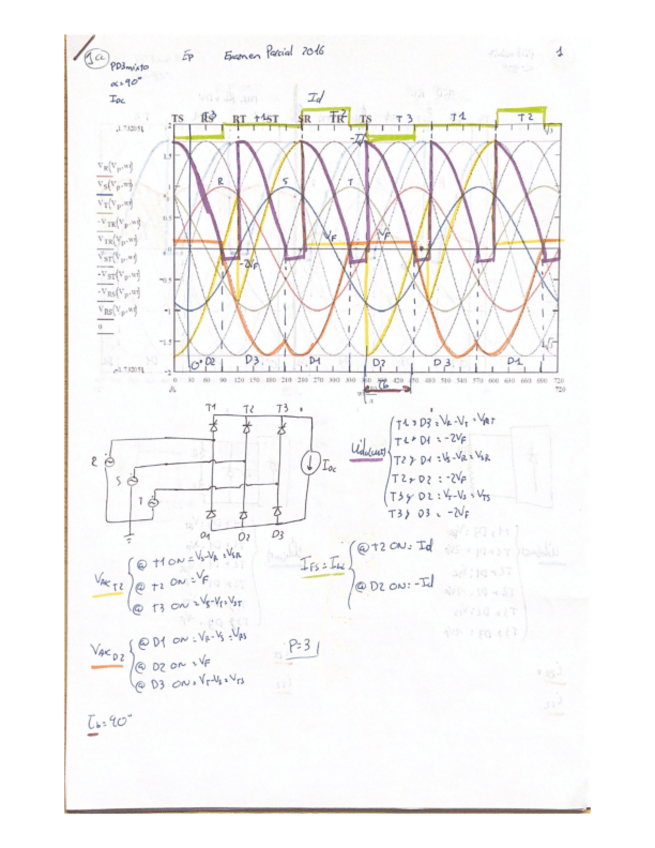 1a Ep Examen Parcial 2016 1
PD3 mixto
α=90°
Idc
Id
TS RS T3 RT T1 ST SR TR T2 TS T3 T1 T2
1.73205
2
1.5
1
0.5
0
-0.5
-1
-1.5
-2
-1.73205
V_R(V_p,wt)
V_S(V_p,wt)
V_T(V_p,wt)
-V_TR(V_p,wt)
V_TR(V_p,wt)
V_ST(V_p,wt)
-V_ST(V_p,wt)
-V_RS(V_p,wt)
V_RS(V_p,wt)
0
R S T
-Id
V_F V_F
-2V_F
0° D2 D3 D1 D2 D3 D1
0 30 60 90 120 150 180 210 240 270 300 330 360 390 420 450 480 510 540 570 600 630 660 690 720
T1 T2 T3
R
S
T
Idc
D1 D2 D3
Udc(wt)
T1 y D3 = V_R-V_T = V_RT
T1 y D1 = -2V_F
T2 y D1 = V_S-V_R = V_SR
T2 y D2 = -2V_F
T3 y D2 = V_T-V_S = V_TS
T3 y D3 = -2V_F
V_AK T2
@ T1 ON = V_S-V_R = V_SR
@ T2 ON = V_F
@ T3 ON = V_S-V_T = V_ST
@ T2 ON = Id
@ D2 ON = -Id
V_AK D2
@ D1 ON = V_R-V_S = V_RS
@ D2 ON = V_F
@ D3 ON = V_T-V_S = V_TS
P=3
=90°